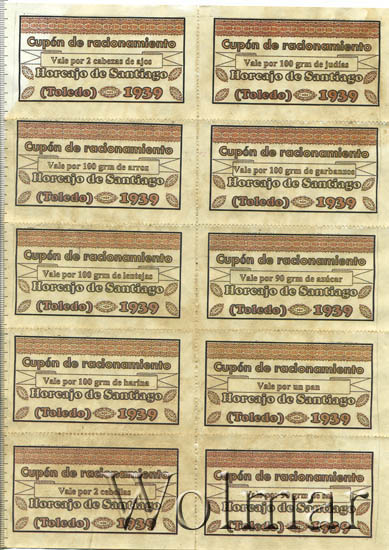 Cupón de racionamiento
Vale por 2 cabezas de ajos
Horcajo de Santiago
(Toledo) 1939
Cupón de racionamiento
Vale por 100 grm de judías
Horcajo de Santiago
(Toledo) 1939
Cupón de racionamiento
Vale por 100 grm de arroz
Horcajo de Santiago
(Toledo) 1939
Cupón de racionamiento
Vale por 100 grm de garbanzos
Horcajo de Santiago
(Toledo) 1939
Cupón de racionamiento
Vale por 100 grm de lentejas
Horcajo de Santiago
(Toledo) 1939
Cupón de racionamiento
Vale por 90 grm de azúcar
Horcajo de Santiago
(Toledo) 1939
Cupón de racionamiento
Vale por 100 grm de harina
Horcajo de Santiago
(Toledo) 1939
Cupón de racionamiento
Vale por un pan
Horcajo de Santiago
(Toledo) 1939
Cupón de racionamiento
Vale por 2 cebollas
Horcajo de Santiago
(Toledo) 1939
Cupón de racionamiento
grm de
Horcajo de Santiago
(Toledo) 1939
Wolmar